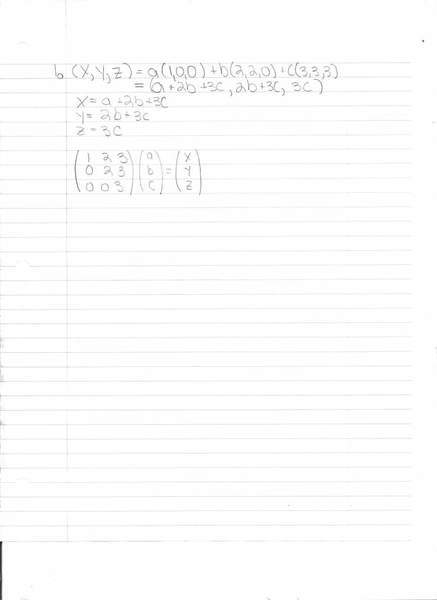 6 (X,Y,Z) = a(1,0,0) + b(2,2,0) + C(3,3,3)
= (a+2b+3C, 2b+3C, 3C)
X = a+2b+3C
Y = 2b+3C
Z = 3C
(1 2 3) (a) (X)
(0 2 3) (b) = (Y)
(0 0 3) (C) (Z)